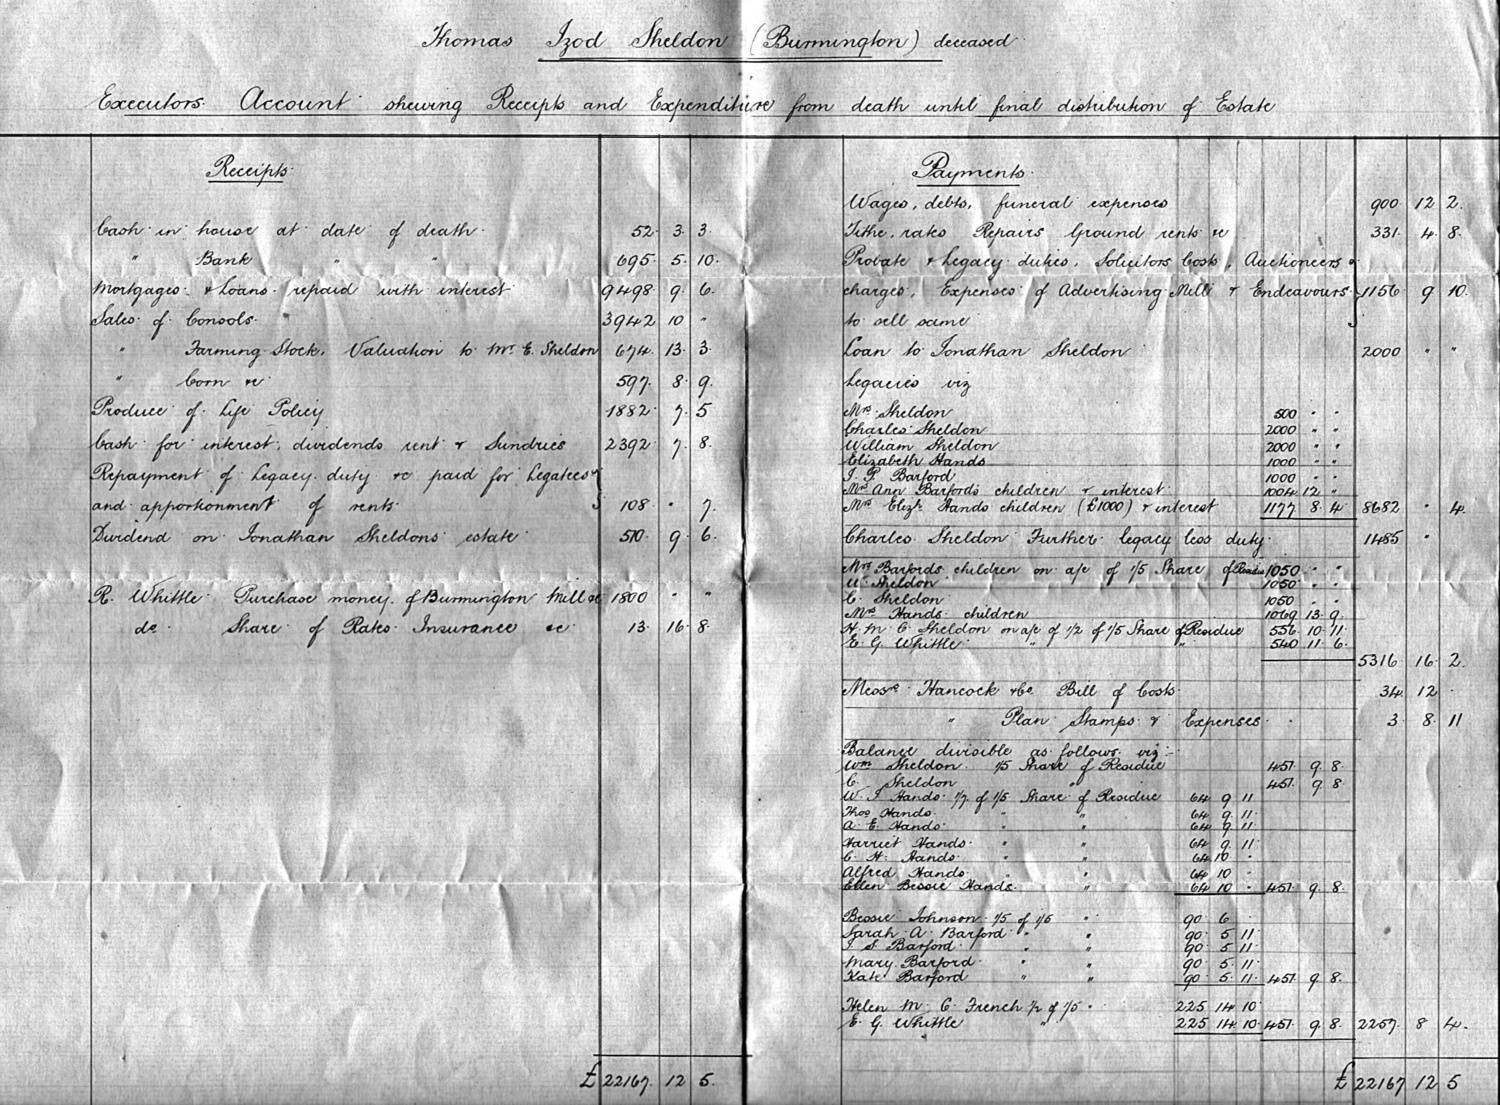 Thomas Izod Sheldon (Burmington) deceased
Executors Account shewing Receipts and Expenditure from death until final distribution of Estate
Receipts
Cash in house at date of death 52 3 3
" Bank " " 695 5 10
Mortgages & Loans repaid with interest 9498 9 6
Sales of Consols " 3942 10 "
" Farming Stock, Valuation to Mr E. Sheldon 674 13 3
" Corn &c 597 8 9
Produce of Life Policy 1882 7 5
Cash for interest, dividends rent & Sundries 2392 7 8
Repayment of Legacy duty &c paid for Legatees
and apportionment of rents 108 " 7
Dividend on Jonathan Sheldons estate 510 9 6
R. Whittle Purchase money of Burmington Mill &c 1800 " "
do Share of Rates Insurance &c 13 16 8
£ 22167 12 5
Payments
Wages, debts, funeral expenses 900 12 2
Tithe, rates Repairs Ground rents &c 331 4 8
Probate & Legacy duties, Solicitors Costs, Auctioneers
charges, Expenses of Advertising Mill & Endeavours 1156 9 10
to sell same
Loan to Jonathan Sheldon 2000 " "
Legacies viz
Mrs Sheldon 500 " "
Charles Sheldon 2000 " "
William Sheldon 2000 " "
Elizabeth Hands 1000 " "
J. P. Barford 1000 " "
Mrs Ann Barfords children & interest 1004 12 "
Mrs Elizh Hands children (£1000) & interest 1177 8 4 8682 " 4
Charles Sheldon Further legacy less duty 1485 "
Mrs Barfords children on a/c of 1/5 Share of Residue 1050 " "
W. Sheldon 1050 " "
C. Sheldon 1050 " "
Mrs Hands children 1069 13 9
H. M. C Sheldon on a/c of 1/2 of 1/5 Share of Residue 556 10 11
E. G. Whittle " " 540 11 6
5316 16 2
Messrs Hancock & Co Bill of Costs 34 12
" Plan Stamps & Expenses 3 8 11
Balance divisible as follows viz:-
Wm Sheldon 1/5 Share of Residue 451 9 8
C. Sheldon " 451 9 8
W. I Hands 1/7 of 1/5 Share of Residue 64 9 11
Thos Hands " " 64 9 11
A. E. Hands " " 64 9 11
Harriet Hands " " 64 9 11
C. H. Hands " " 64 10 "
Alfred Hands " " 64 10 "
Ellen Bessie Hands " " 64 10 " 451 9 8
Bessie Johnson 1/5 of 1/5 " 90 6
Sarah A. Barford " " 90 5 11
J S. Barford " " 90 5 11
Mary Barford " " 90 5 11
Kate Barford " " 90 5 11 451 9 8
Helen M. C. French 1/2 of 1/5 " 225 14 10
E. G. Whittle " 225 14 10 451 9 8 2257 8 4
£ 22167 12 5